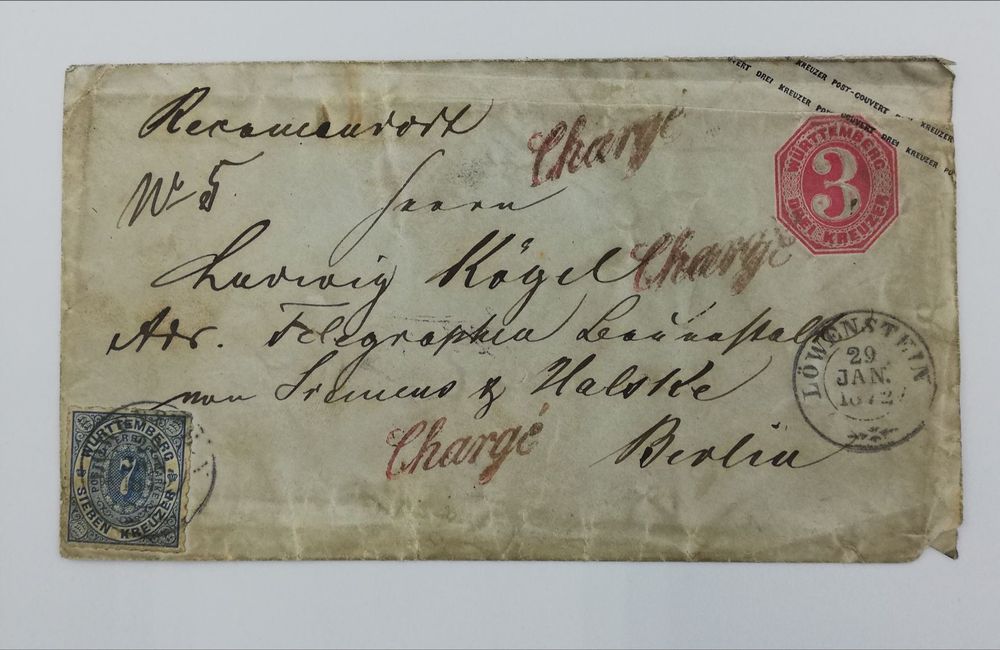 Recomandirt
Nr 5
Chargé
Herrn
Ludwig Kögel
Chargé
Adr. Telegraphen Bauanstalt
von Siemens & Halske
Chargé
Berlin
DREI KREUZER POST-COUVERT DREI KREUZER
COUVERT DREI KREUZER POST-COUVERT DREI KREUZER
WÜRTTEMBERG
3
DREI KREUZER
LÖWENSTEIN
29
JAN.
1872
WÜRTTEMBERG
7
SIEBEN KREUZER